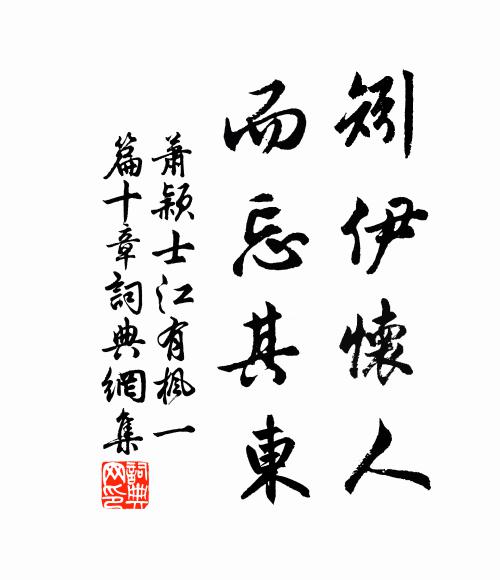 矧伊懷人
而忘其東
蕭穎士江有楓一
篇十章詞典網集
詞典
网印